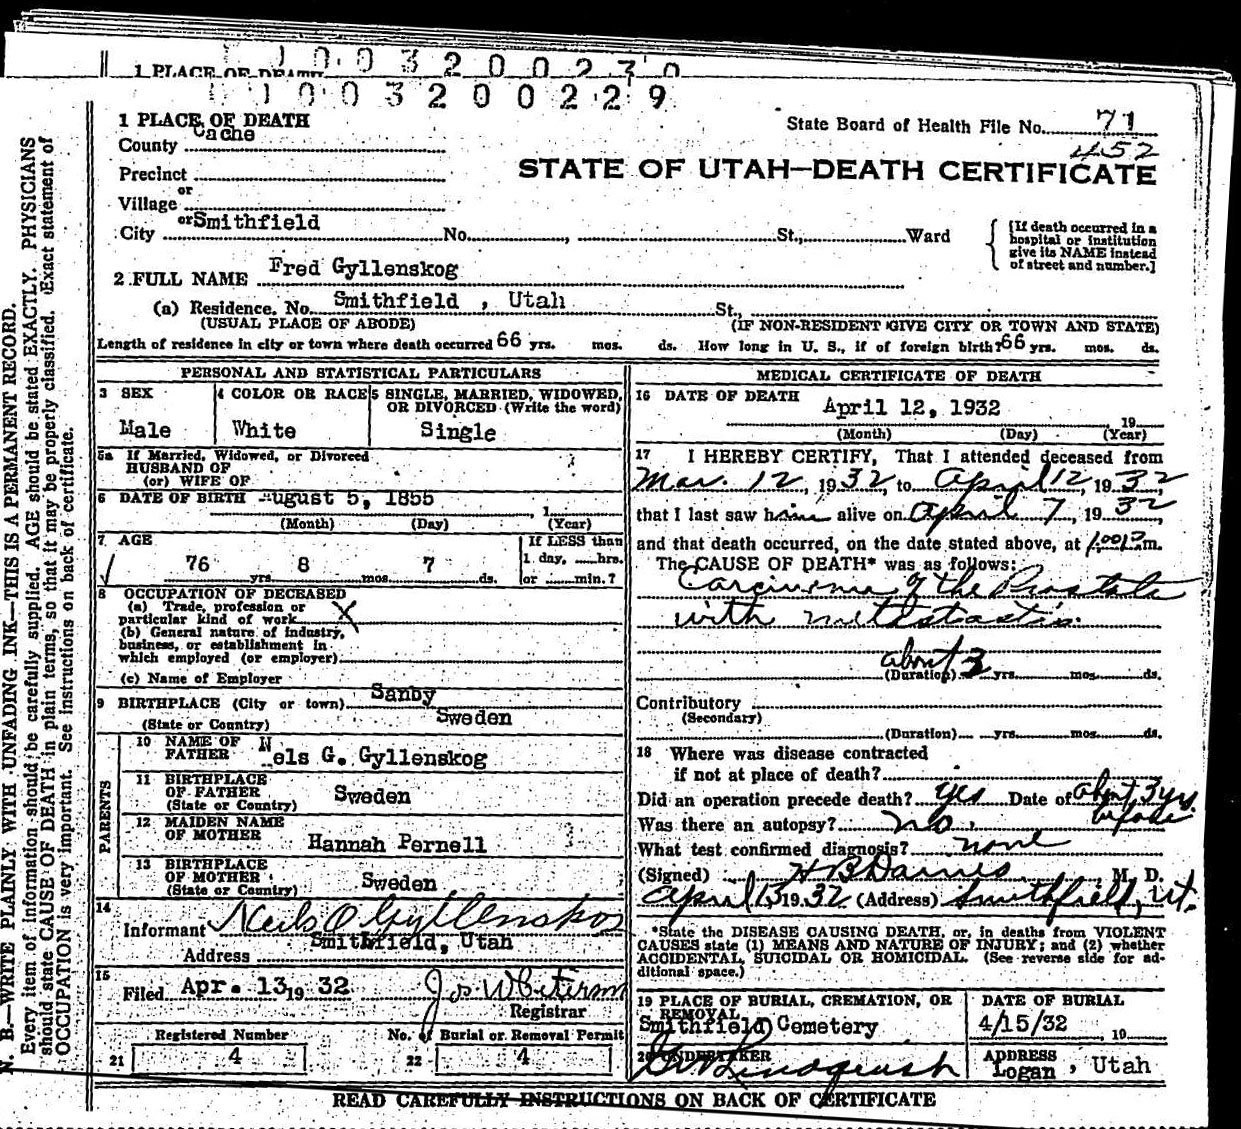 1 PLACE OF DEATH
1 0 0 3 2 0 0 2 3 0
1 0 0 3 2 0 0 2 2 9
1 PLACE OF DEATH
State Board of Health File No. 71
452
County Cache
STATE OF UTAH—DEATH CERTIFICATE
Precinct
or
Village
or
City Smithfield No. , St., Ward
[If death occurred in a hospital or institution give its NAME instead of street and number.]
2 FULL NAME Fred Gyllenskog
(a) Residence. No. Smithfield , Utah St.,
(USUAL PLACE OF ABODE) (IF NON-RESIDENT GIVE CITY OR TOWN AND STATE)
Length of residence in city or town where death occurred 66 yrs. mos. ds. How long in U. S., if of foreign birth? 66 yrs. mos. ds.
PERSONAL AND STATISTICAL PARTICULARS
3 SEX
Male
4 COLOR OR RACE
White
5 SINGLE, MARRIED, WIDOWED, OR DIVORCED (Write the word)
Single
5a If Married, Widowed, or Divorced
HUSBAND OF
(or) WIFE OF
6 DATE OF BIRTH August 5, 1855 , 1
(Month) (Day) (Year)
7 AGE
76 yrs. 8 mos. 7 ds.
If LESS than
1 day, hrs.
or min.?
8 OCCUPATION OF DECEASED
(a) Trade, profession or
particular kind of work X
(b) General nature of industry,
business, or establishment in
which employed (or employer)
(c) Name of Employer
9 BIRTHPLACE (City or town) Sanby
(State or Country) Sweden
PARENTS
10 NAME OF FATHER Nels G. Gyllenskog
11 BIRTHPLACE
OF FATHER Sweden
(State or Country)
12 MAIDEN NAME
OF MOTHER Hannah Pernell
13 BIRTHPLACE
OF MOTHER
(State or Country) Sweden
14
Informant Neils O Gyllenskog
Address Smithfield, Utah
15
Filed Apr. 13 19 32
Registrar
Registered Number
21 4
No. of Burial or Removal Permit
22 4
MEDICAL CERTIFICATE OF DEATH
16 DATE OF DEATH
April 12, 1932 19
(Month) (Day) (Year)
17 I HEREBY CERTIFY, That I attended deceased from
Mar. 12, 1932, to April 12, 1932,
that I last saw him alive on April 7, 1932,
and that death occurred, on the date stated above, at 1:00 P.m.
The CAUSE OF DEATH* was as follows:
Carcinoma of the Prostate
with metastasis.
about 3
(Duration) yrs. mos. ds.
Contributory
(Secondary)
(Duration) yrs. mos. ds.
18 Where was disease contracted
if not at place of death?
Did an operation precede death? yes Date of about 3 yrs.
before
Was there an autopsy? no.
What test confirmed diagnosis? none
(Signed) H B Daines M. D.
April 13 19 32 (Address) Smithfield, Ut.
*State the DISEASE CAUSING DEATH, or, in deaths from VIOLENT
CAUSES state (1) MEANS AND NATURE OF INJURY; and (2) whether
ACCIDENTAL, SUICIDAL OR HOMICIDAL. (See reverse side for ad-
ditional space.)
19 PLACE OF BURIAL, CREMATION, OR
REMOVAL
Smithfield Cemetery
DATE OF BURIAL
4/15/32 , 19
20 UNDERTAKER
Lindquist
ADDRESS
Logan , Utah
READ CAREFULLY INSTRUCTIONS ON BACK OF CERTIFICATE
N. B.—WRITE PLAINLY WITH UNFADING INK—THIS IS A PERMANENT RECORD.
Every item of information should be carefully supplied. AGE should be stated EXACTLY. PHYSICIANS
should state CAUSE OF DEATH in plain terms, so that it may be properly classified. Exact statement of
OCCUPATION is very important. See instructions on back of certificate.